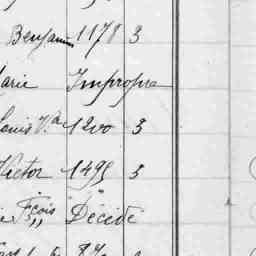 Benjamin 1178 3
Marie Impropre
Louis Va 1200 3
Victor 1495 3
Fçois " Décidé